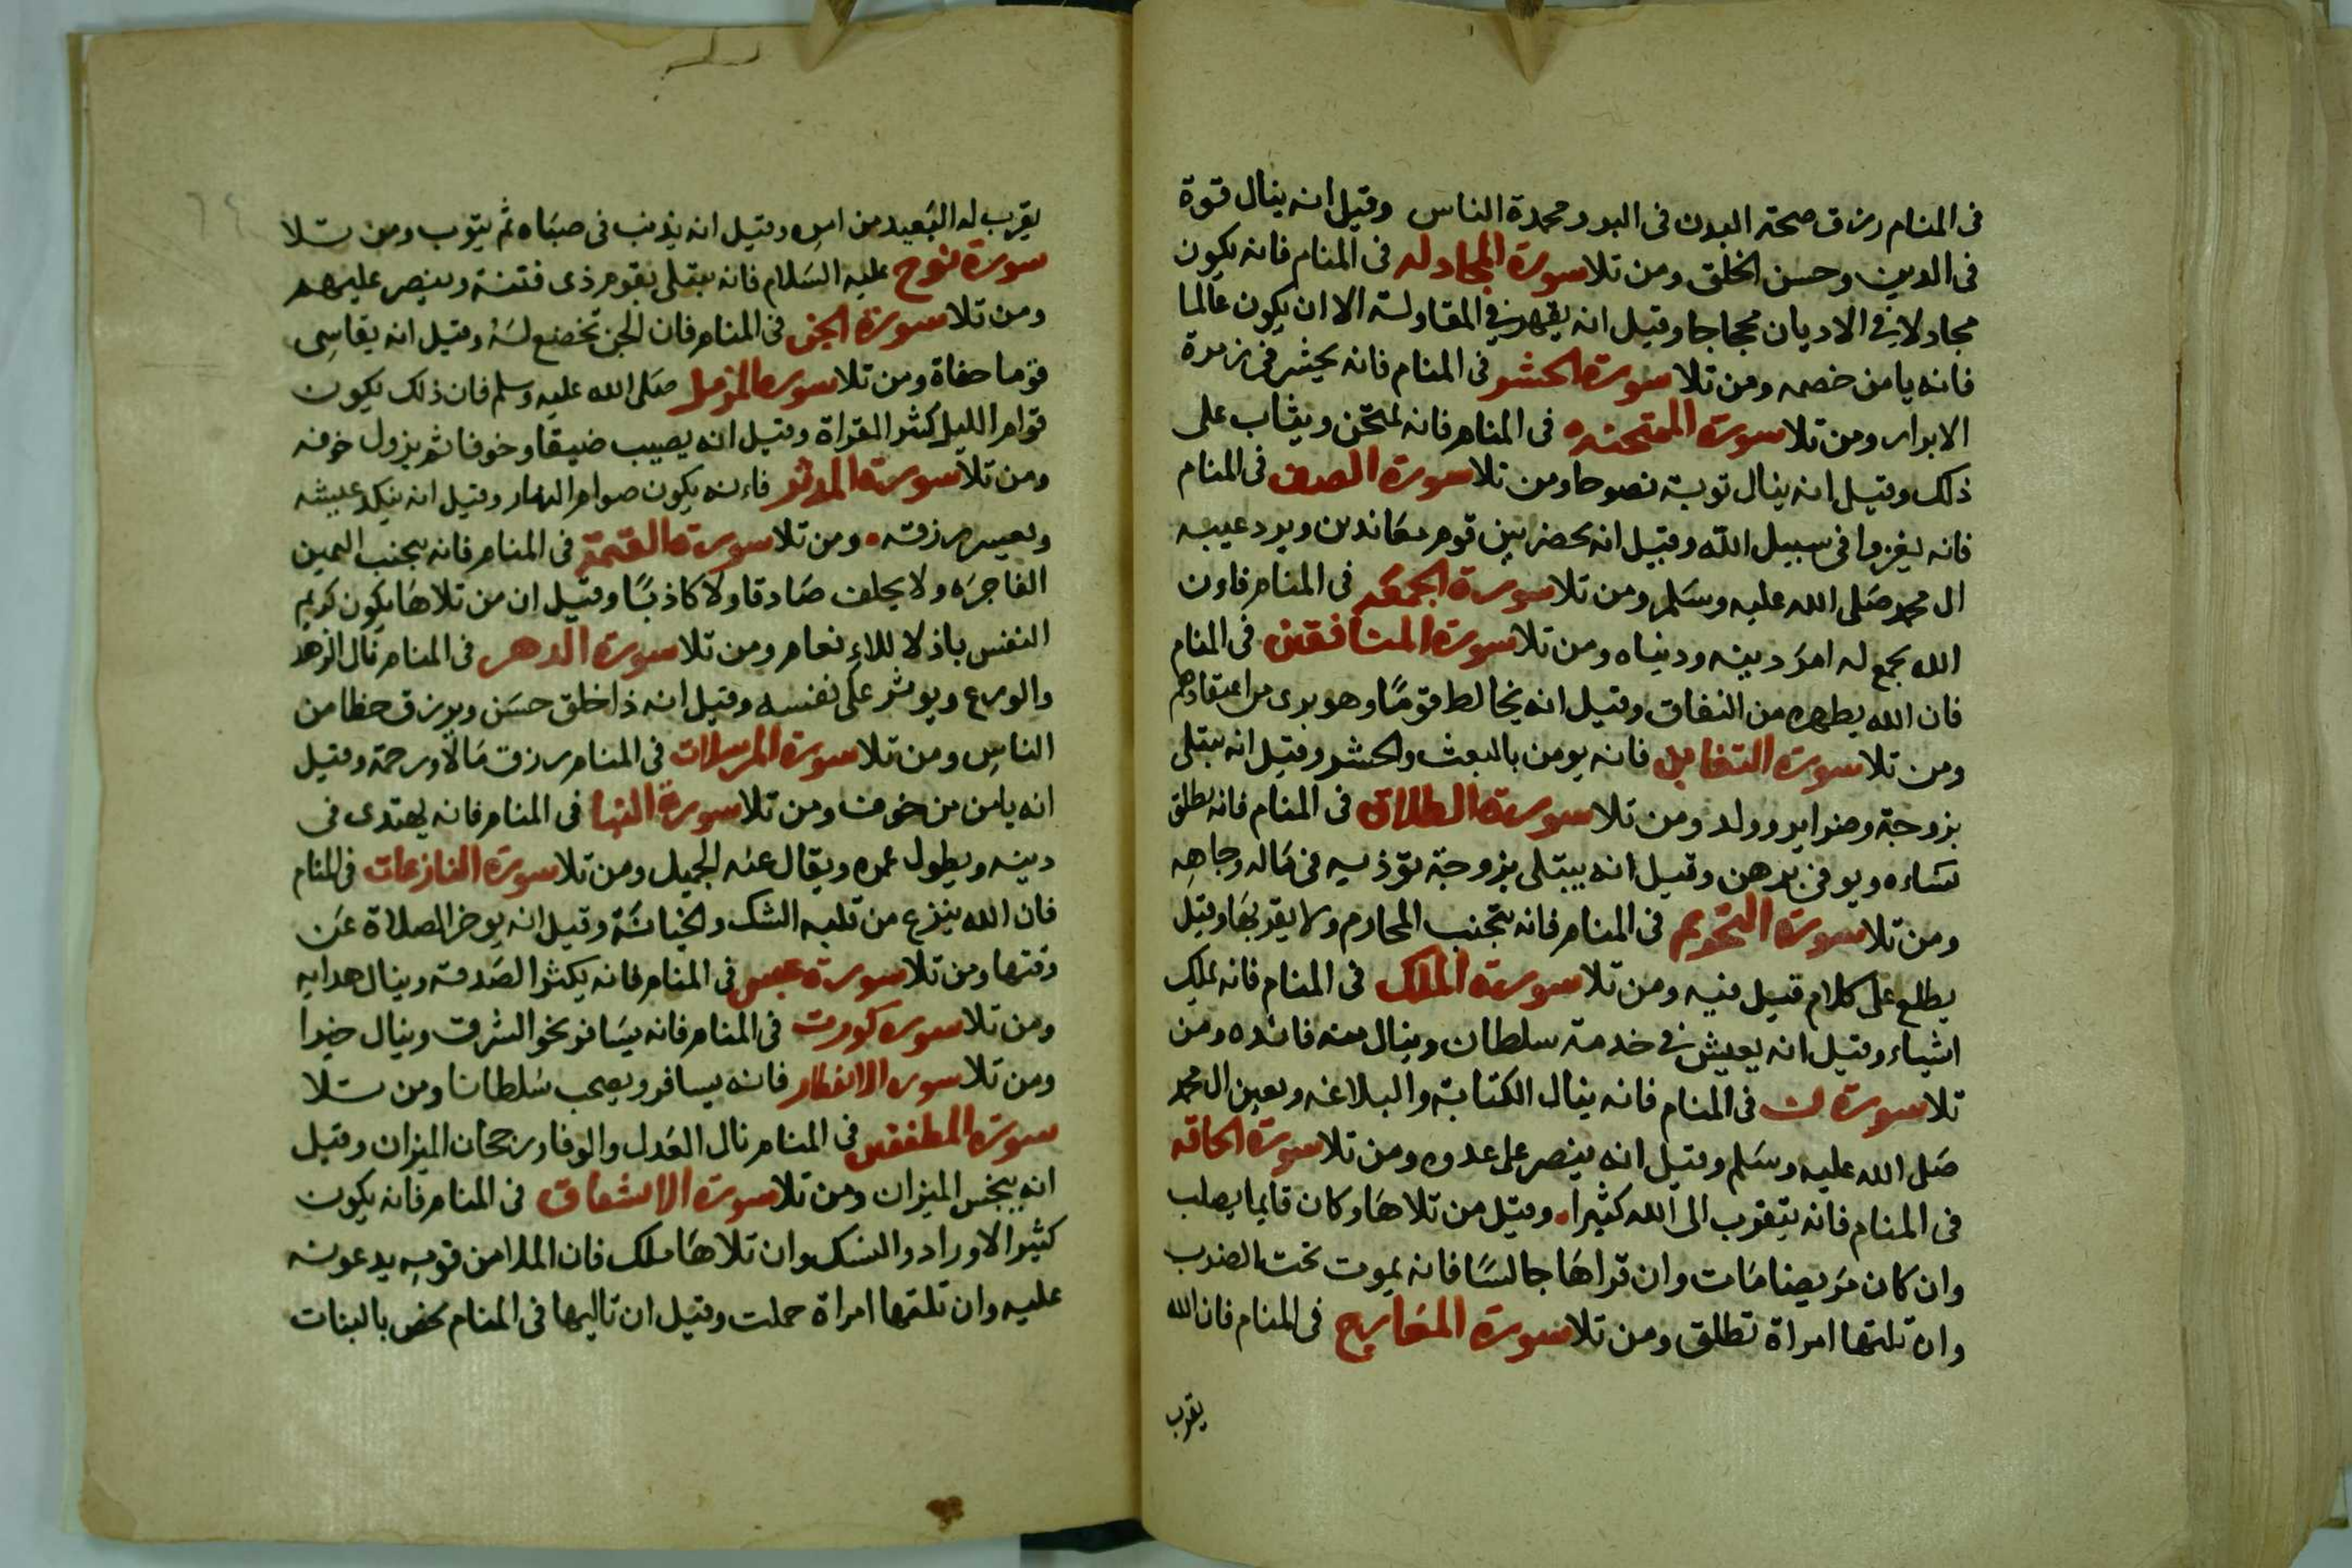 فى المنام رزق صحته البدن فى البدو ومحمدة الناس وقيل انه ينال قوة
فى الدين وحسن الخلق ومن تلا سورة المجادله فى المنام فانه يكون
مجادلا فى الاديان محجاجا وقيل انه يقهر فى المقاولة الا ان يكون عالما
فانه يامن خصمه ومن تلا سورة الحشر فى المنام فانه يحشر فى زمرة
الابرار ومن تلا سورة الممتحنه فى المنام فانه يمتحن ويثاب على
ذلك وقيل انه ينال توبة نصوحا ومن تلا سورة الصف فى المنام
فانه يغزوا فى سبيل الله وقيل انه يحضر بين قوم معاندين ويرد عيبه
ال محمد صلى الله عليه وسلم ومن تلا سورة الجمعه فى المنام فاون
الله يجمع له امر دينه ودنياه ومن تلا سورة المنافقين فى المنام
فان الله يطهره من النفاق وقيل انه يخالط قوما وهو برى من اعتقادهم
ومن تلا سورة التغابن فانه يومن بالبعث والحشر وقيل انه يبتلى
بزوجة وضراير وولد ومن تلا سورة الطلاق فى المنام فانه يطلق
نساءه ويوفى مهرهن وقيل انه يبتلى بزوجة توذيه فى ماله وجاهه
ومن تلا سورة التحريم فى المنام فانه يتجنب المحارم ولا يقربها وقيل
يطلع على كلام قيل فيه ومن تلا سورة الملك فى المنام فانه يملك
اشياء وقيل انه يعيش فى خدمة سلطان وينال منه فائده ومن
تلا سورة ن فى المنام فانه ينال الكتابة والبلاغه ويعين ال محمد
صلى الله عليه وسلم وقيل انه ينصر على عدوه ومن تلا سورة الحاقه
فى المنام فانه يتقرب الى الله كثيرا وقيل من تلاها وكان قايما يصلب
وان كان مريضا مات وان قراها جالسا فانه يموت تحت الضرب
وان تلتها امراة تطلق ومن تلا سورة المعارج فى المنام فان الله
يقرب
يقرب له البعيد من امره وقيل انه يذنب فى صباه ثم يتوب ومن تلا
سورة نوح عليه السلام فانه يبتلى بقوم ذى فتنة وينصر عليهم
ومن تلا سورة الجن فى المنام فان الجن تخضع له وقيل انه يقاسى
قوما حفاة ومن تلا سورة المزمل صلى الله عليه وسلم فان ذلك يكون
قوام الليل كثير القراة وقيل انه يصيب ضيقا وخوفا ثم يزول خوفه
ومن تلا سورة المدثر فاءنه يكون صوام النهار وقيل انه ينكد عيشه
ويعسر رزقه ومن تلا سورة القيمة فى المنام فانه يجنب اليمين
الفاجره ولا يحلف صادقا ولا كاذبا وقيل ان من تلاها يكون كريم
النفس باذلا للاءنعام ومن تلا سورة الدهر فى المنام نال الزهد
والورع ويوثر على نفسه وقيل انه ذا خلق حسن ويرزق حظا من
الناس ومن تلا سورة المرسلات فى المنام رزق مالا ورحمة وقيل
انه يامن من خوف ومن تلا سورة النبا فى المنام فانه يهتدى فى
دينه ويطول عمره ويقال عنه الجميل ومن تلا سورة النازعات فى المنام
فان الله ينزع من قلبه الشك والخيانة وقيل انه يوخر الصلاة عن
وقتها ومن تلا سورة عبس فى المنام فانه يكثر الصدقه وينال هدايه
ومن تلا سورة كورت فى المنام فانه يسافر نحو الشرق وينال خيرا
ومن تلا سورة الانفطار فانه يسافر ويصحب سلطانا ومن تلا
سورة المطففين فى المنام نال العدل والوفا ورجحان الميزان وقيل
انه يبخس الميزان ومن تلا سورة الانشقاق فى المنام فانه يكون
كثير الاوراد والنسك وان تلاها ملك فان الملا من قومه يدعونه
عليه وان تلتها امراة حملت وقيل ان تاليها فى المنام يخص بالبنات